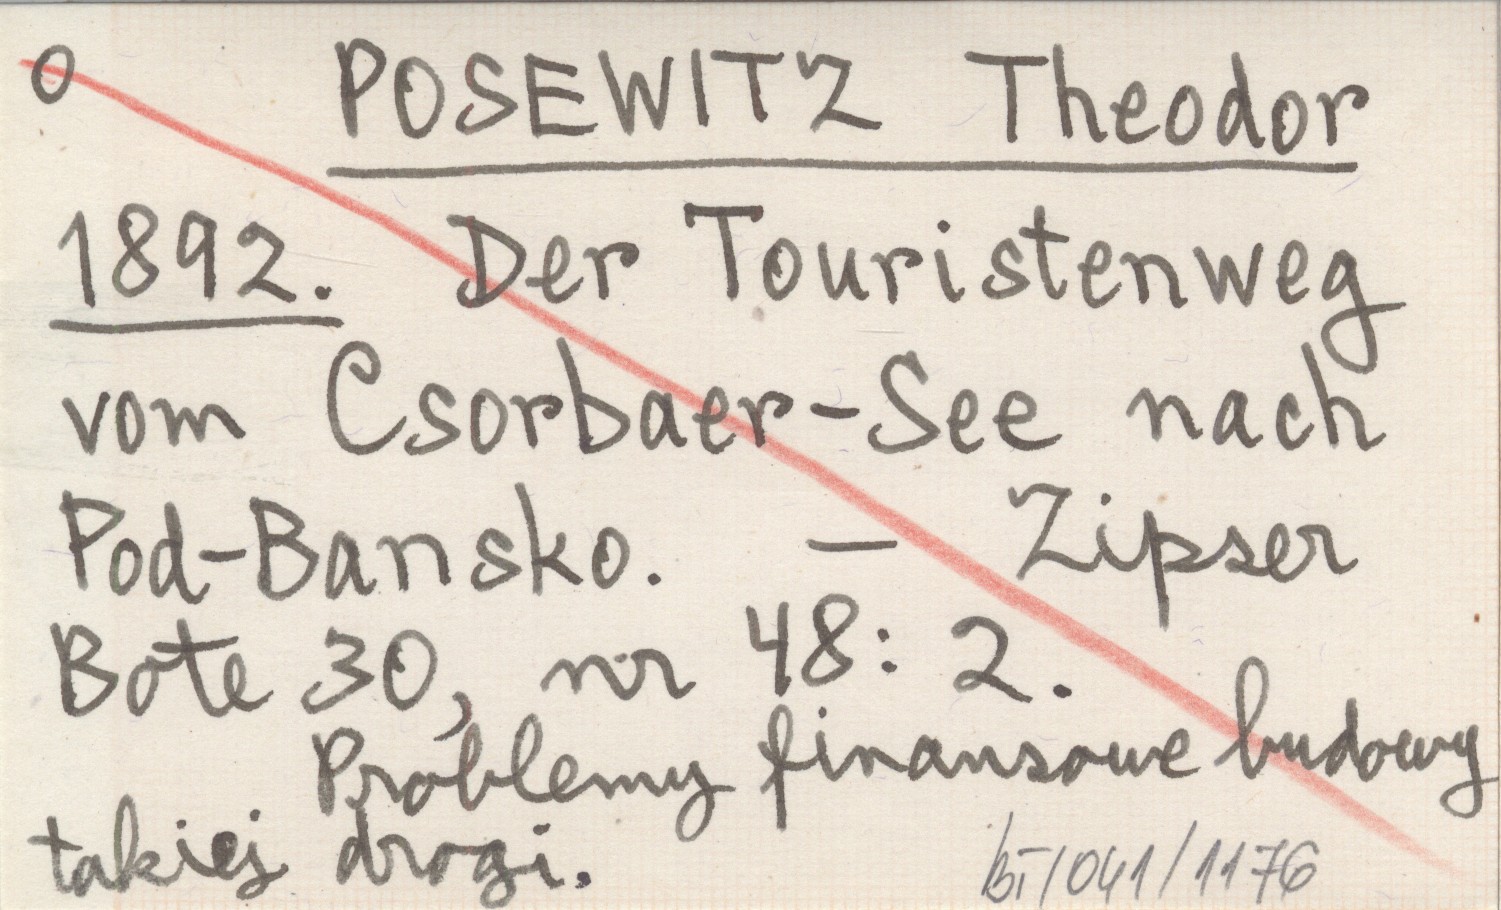 O POSEWITZ Theodor
1892. Der Touristenweg
vom Csorbaer-See nach
Pod-Bansko. — Zipser
Bote 30, nr 48: 2.
Problemy finansowe budowy
takiej drogi.
bT/041/1176